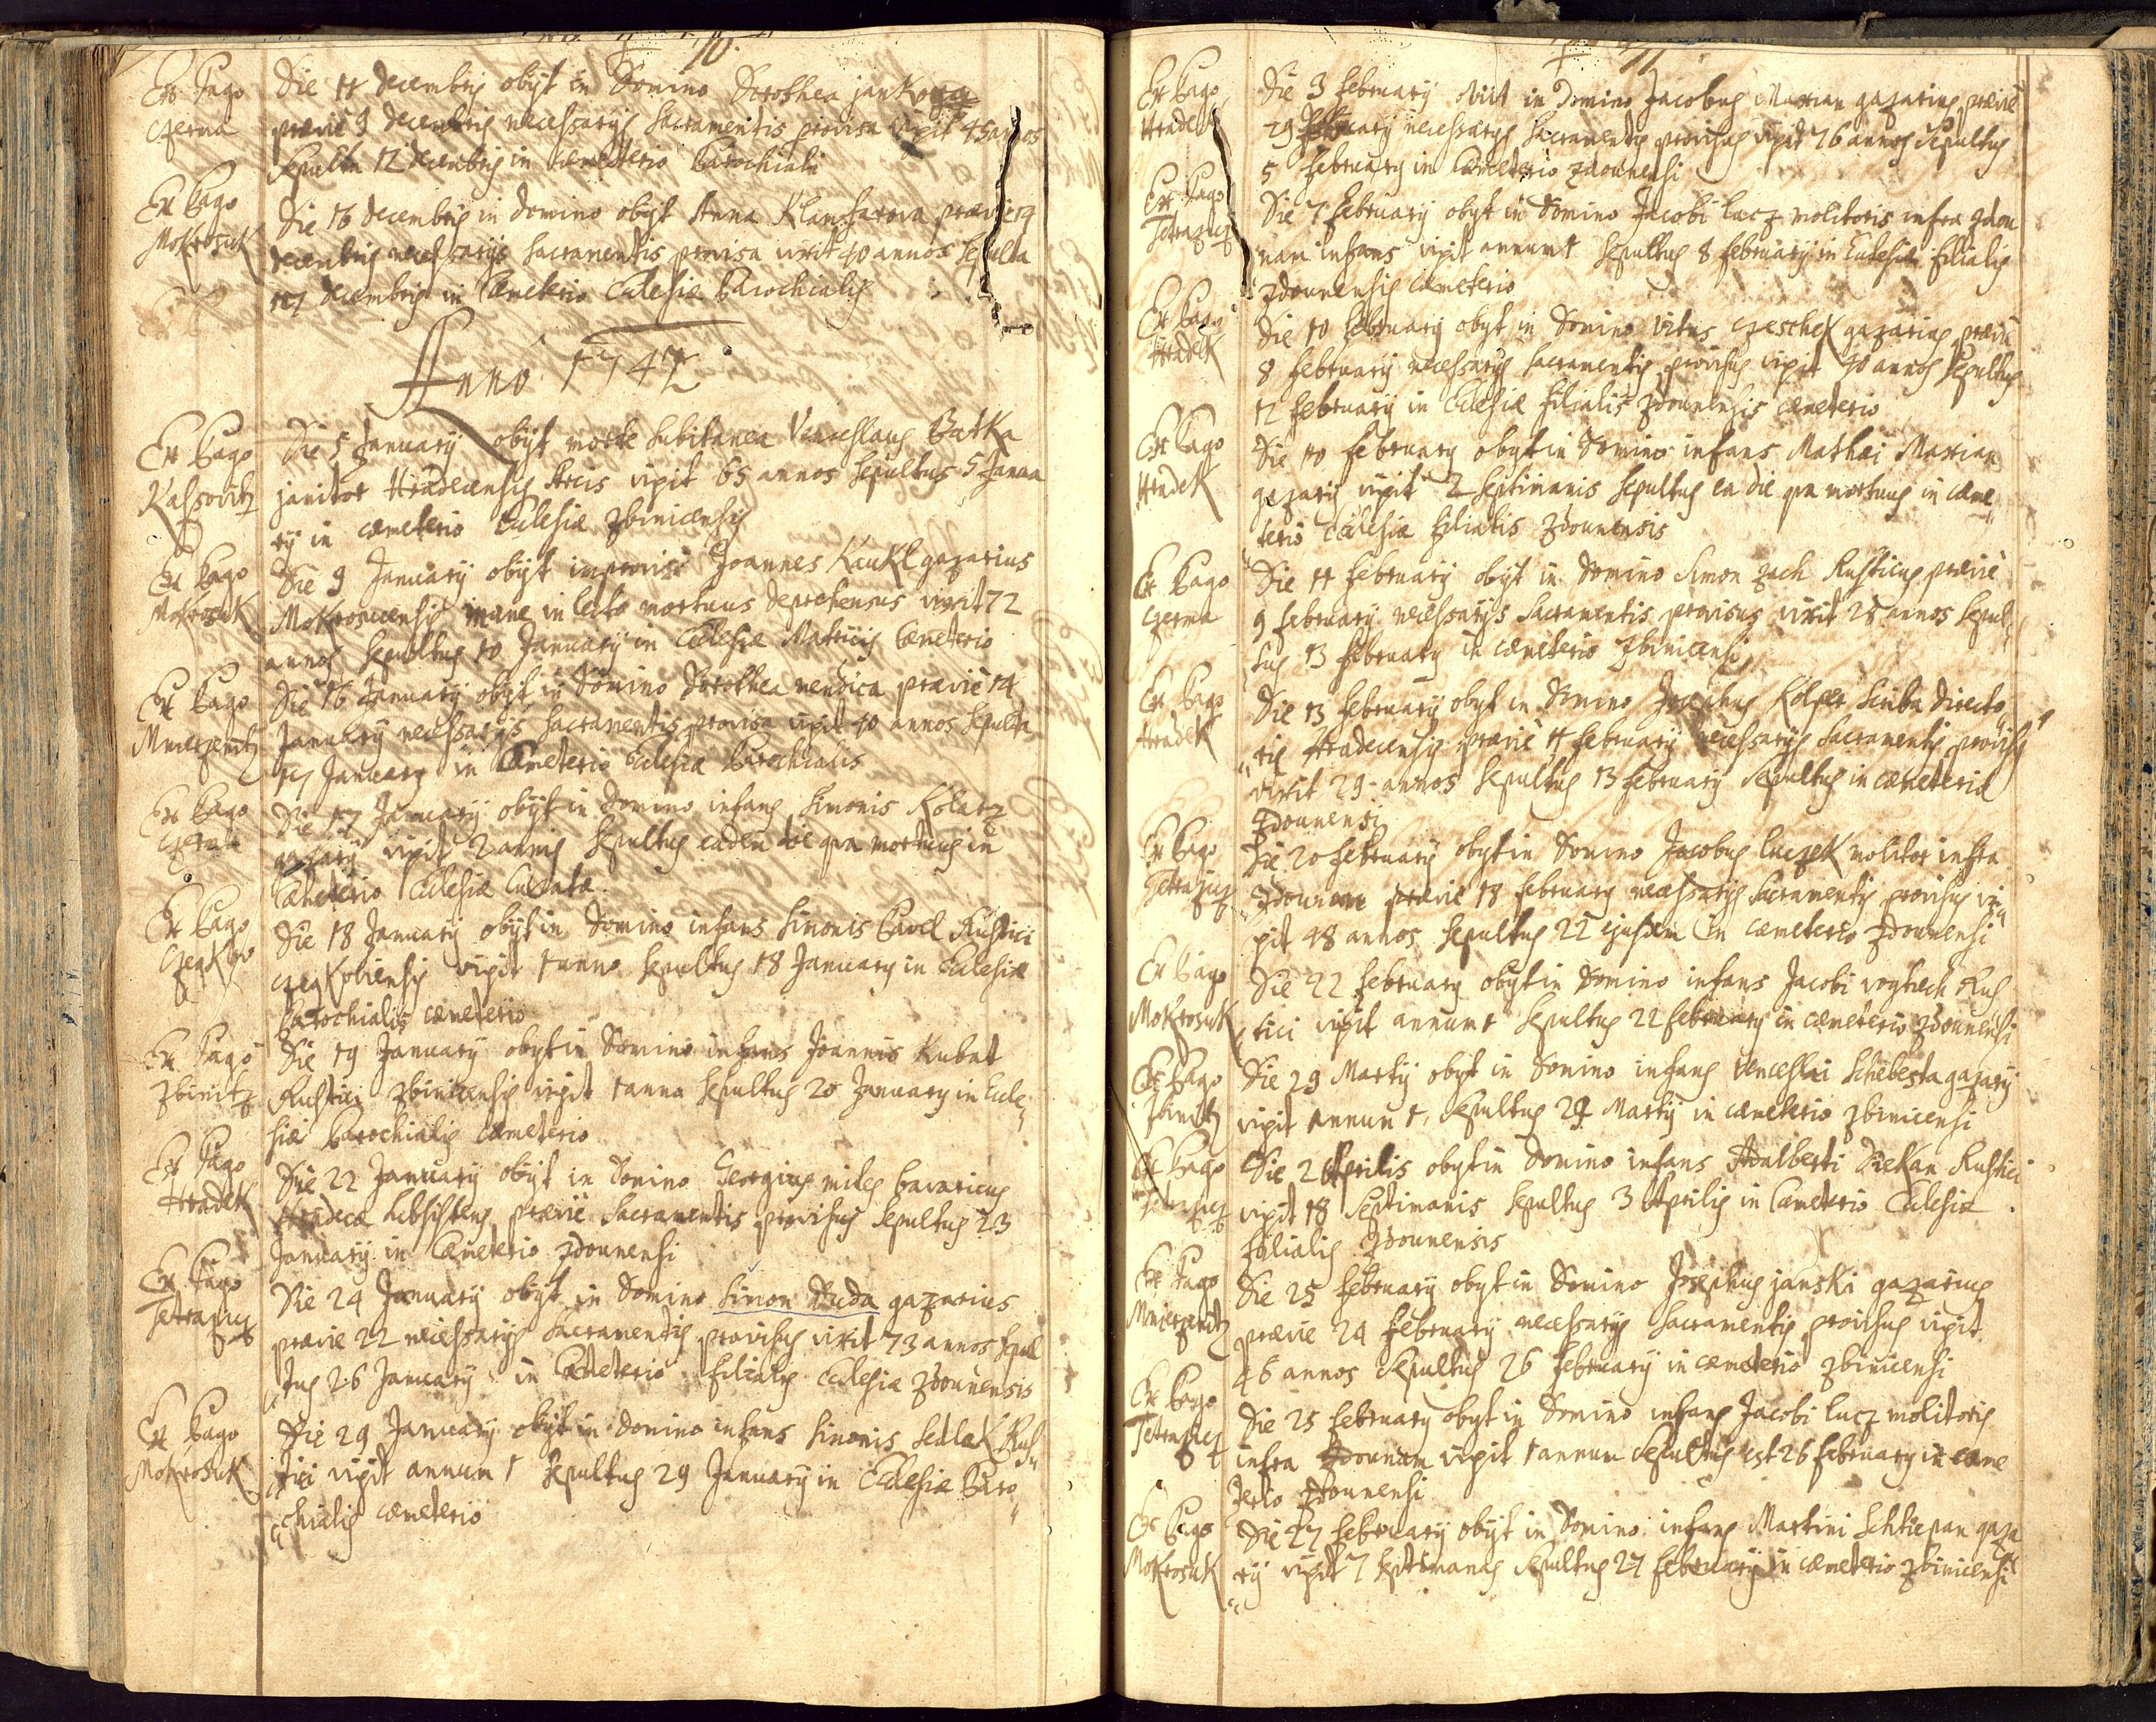 70.
Ex Pago
Czerna
Die 11 decembris obijt in Domino Dorothea jankowa
prævie 9 decembris necessarijs Sacramentis provisa vixit 45 annos
Sepulta 12 decembris in cæmeterio Parochiali
Ex Pago
Mokrosuk
Die 16 decembris in domino obijt Anna Klamfarova prævie 14
decembris necessarijs Sacramentis provisa vixit 40 annos Sepulta
17 decembris in Cæmeterio Eclesiæ Parochialis
Anno 1742
Ex Pago
Kassovitz
Die 5 January obijt morte subitanea Venceslaus Batka
janitor Hradecensis Arcis vixit 65 annos Sepultus 5 Janua
rij in cæmeterio Eclesiæ Zbinicensis
Ex Pago
Mokrosuk
Die 9 January obijt improvise Joannes Kaukl gazarius
Mokrosucensis mane in lecto mortuus deprehensus vixit 72
annos Sepultus 10 January in Eclesiæ Matricis Cæmeterio
Ex Pago
Mnierzenitz
Die 16 January obijt in Domino Dorothea mendica prævie 14
January necessarijs Sacramentis provisa vixit 40 annos Sepulta
17 January in Cæmeterio Eclesiæ Parochialis
Ex Pago
Czerna
Die 17 January obijt in Domino infans Simonis Kolarz
gazarij vixit 2 annis Sepultus eadem die qua mortuus in
Cæmeterio Eclesiæ Curatæ
Ex Pago
Die 18 January obijt in Domino infans Simonis Pavel Rustici
vixit 1 anno Sepultus 18 January in Eclesiæ
Parochialis cæmeterio
Ex Pago
Zbinitz
Die 19 January obijt in Domino infans Joannis Kubat
Rustici Zbinicensis vixit 1 anno Sepultus 20 January in Ecle
siæ Parochialis cæmeterio
Ex Pago
Hradek
Die 22 January obijt in Domino Georgius miles bavaricus
Hradecæ subsistens prævie Sacramentis provisus Sepultus 23
January in Cæmeterio Zdounensi
Ex Pago
Tetrazicz
Die 24 January obijt in Domino Simon Duda gazarius
prævie 22 necessarijs Sacramentis provisus vixit 73 annos Sepul
tus 26 January in Cæmeterio filialis Eclesiæ Zdounensis
Ex Pago
Mokrosuk
Die 29 January obijt in Domino infans Simonis Sedlak Rus
tici vixit annum 1 Sepultus 29 January in Eclesiæ Paro
chialis cæmeterio
71
Ex Pago
Hradek
Die 3 February obiit in Domino Jacobus Marian gazarius prævie
29 necessarijs Sacramentis provisus vixit 76 annos Sepultus
5 February in Cæmeterio Zdounensi
Ex Pago
Tetrazicz
Die 7 February obijt in Domino Jacobi Lucz molitoris infra Zdou
nam infans vixit annum 1 Sepultus 8 February in Eclesiæ filialis
Zdounensis cæmeterio
Ex Pago
Hradek
Die 10 February obijt in Domino Vitus Czeschek gazarius prævie
8 February necessarijs Sacramentis provisus vixit 40 annos Sepultus
12 February in Eclesiæ filialis Zdounensis cæmeterio
Ex Pago
Hradek
Die 10 February obijt in Domino infans Mathæi Marian
gazarij vixit 2 Septimanis Sepultus ea die qua mortuus in cæme
terio Eclesiæ filialis Zdounensis
Ex Pago
Czerna
Die 11 February obijt in Domino Simon Zach Rusticus prævie
9 February necessarijs Sacramentis provisus vixit 28 annos Sepul
tus 13 February in cæmeterio Zbinicensi
Ex Pago
Hradek
Die 13 February obijt in Domino Josephus Kolper Scriba Directo
ris Hradecensis prævie 11 February necessarijs Sacramentis provisus
vixit 29 annos Sepultus 13 February Sepultus in cæmeterio
Zdounensi
Ex Pago
Tetrazicz
Die 20 February obijt in Domino Jacobus Luczek molitor infra
Zdounam prævie 18 February necessarijs Sacramentis provisus vi
xit 48 annos Sepultus 22 ejusdem in cæmeterio Zdounensi
Ex Pago
Mokrosuk
Die 22 February obijt in Domino infans Jacobi Voytiech Rus
tici vixit annum 1 Sepultus 22 February in cæmeterio Zdounensi
Ex Pago
Zbinitz
Die 29 Martij obijt in Domino infans Venceslai Schebesta gazarij
vixit annum 1, Sepultus 29 Martij in cæmeterio Zbinicensi
Ex Pago
Tetrazicz
Die 2 Aprilis obijt in Domino infans Adalberti Diekan Rustici
vixit 18 Septimanis Sepultus 3 Aprilis in Cæmeterio Eclesiæ
filialis Zdounensis
Ex Pago
Mnierzenitz
Die 25 February obijt in Domino Josephus janski gazarius
prævie 24 February necessarijs Sacramentis provisus vixit
46 annos Sepultus 26 February in cæmeterio Zbinicensi
Ex Pago
Tetrazicz
Die 25 February obijt in Domino infans Jacobi Lucz molitoris
infra Zdounam vixit 1 annum Sepultus est 26 February in cæme
terio Zdounensi
Ex Pago
Mokrosuk
Die 27 February obijt in Domino infans Martini Schtiepan gaza
rij vixit 7 septimanas Sepultus 27 February in cæmeterio Zbinicensi